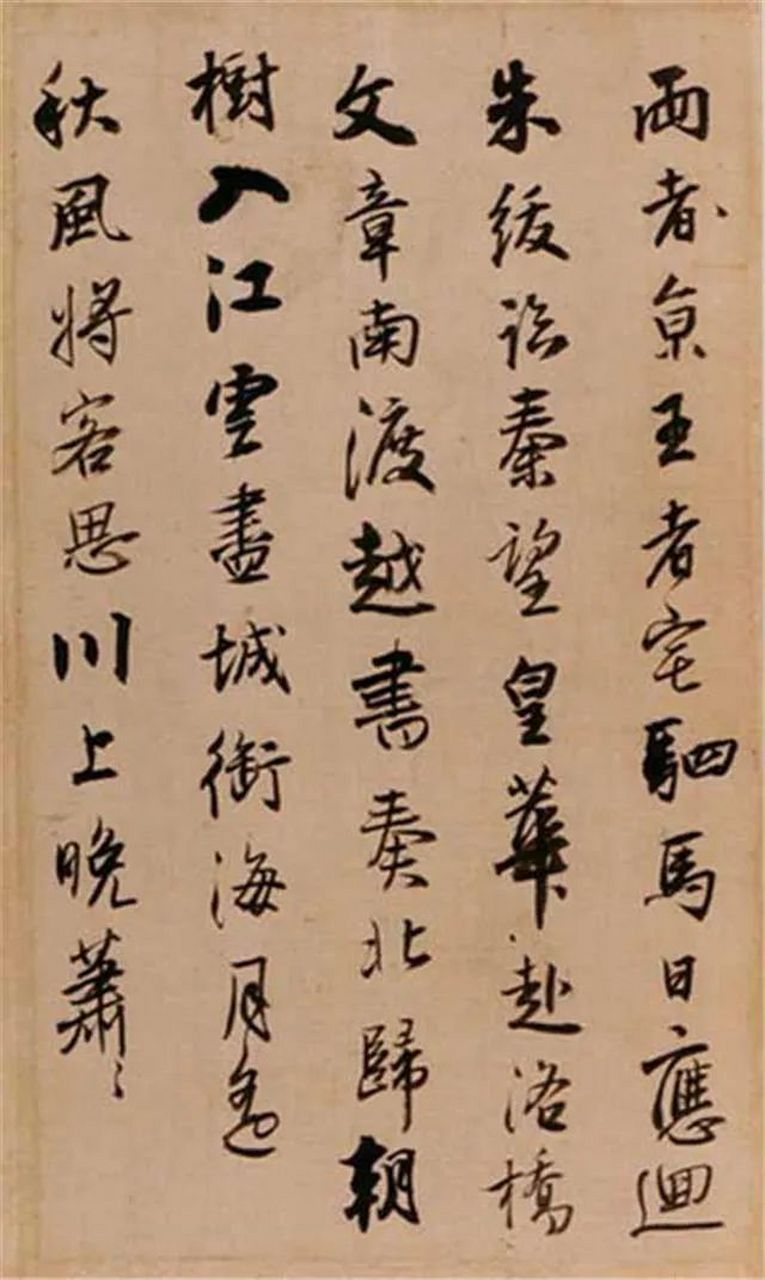 兩都亰王者宅駟馬日應迴
朱紱臨秦望皇華赴洛橋
文章南渡越書奏北歸朝
樹入江雲盡城銜海月遙
秋風將客思川上晚蕭〻